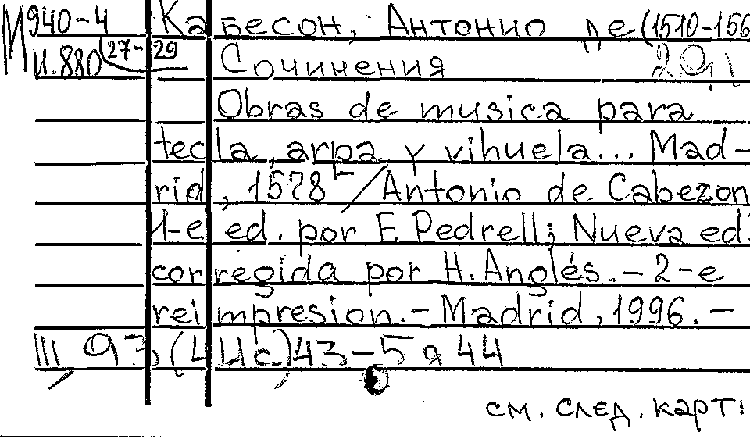 М940-4 Кабесон, Антонио де (1510-156
И.880 (27-29 Сочинения
Obras de musica para
tecla, arpa y vihuela... Mad-
rid, 1578 / Antonio de Cabezon
1-e ed. por F. Pedrell; Nueva ed.
corregida por H. Anglés. - 2-e
reimpresion. - Madrid, 1996. -
III, 93 (4 Ис) 43-5 44
см. след. карт.